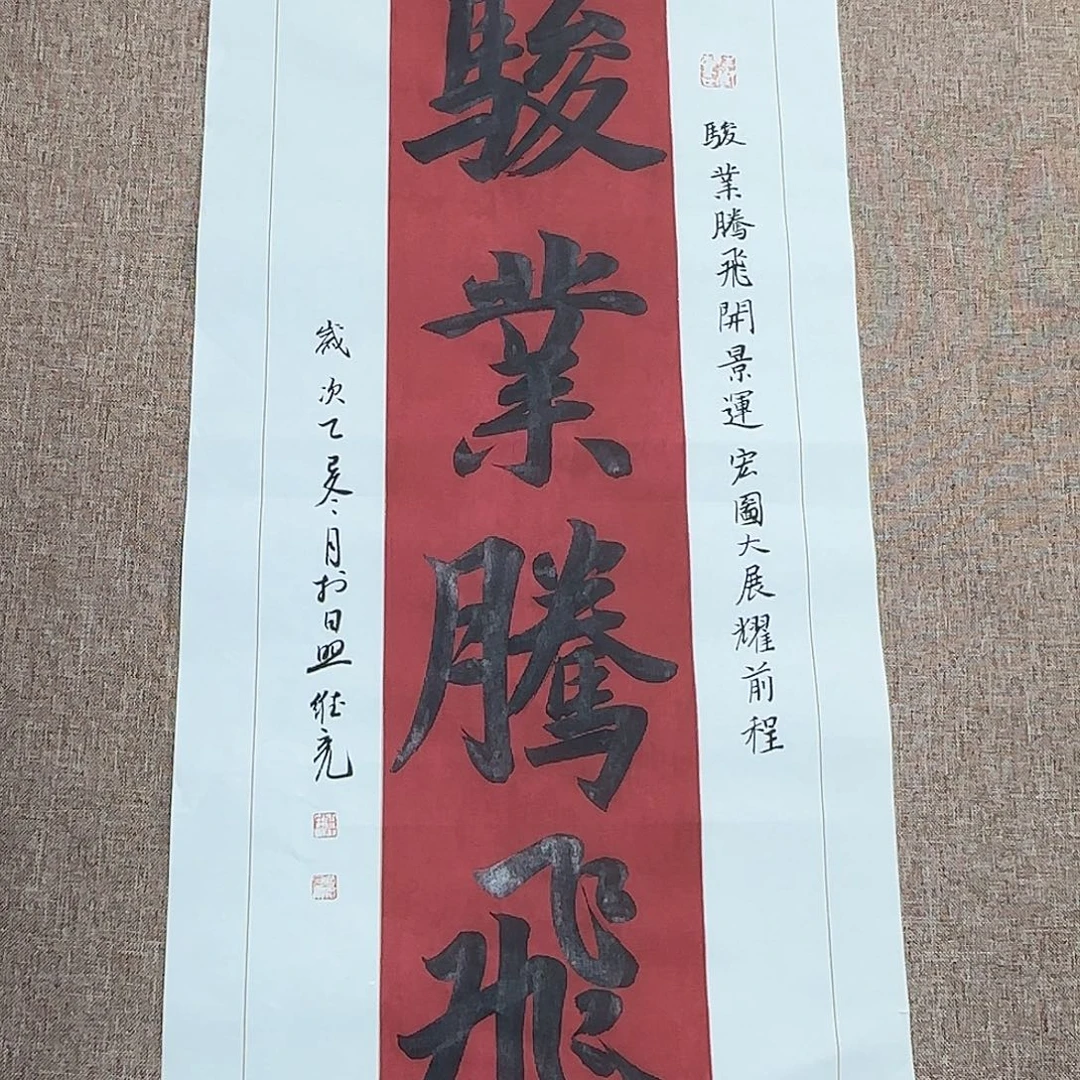 駿業騰飛開景運宏圖大展耀前程
駿業騰飛
歲次乙巳冬月於日照維亮